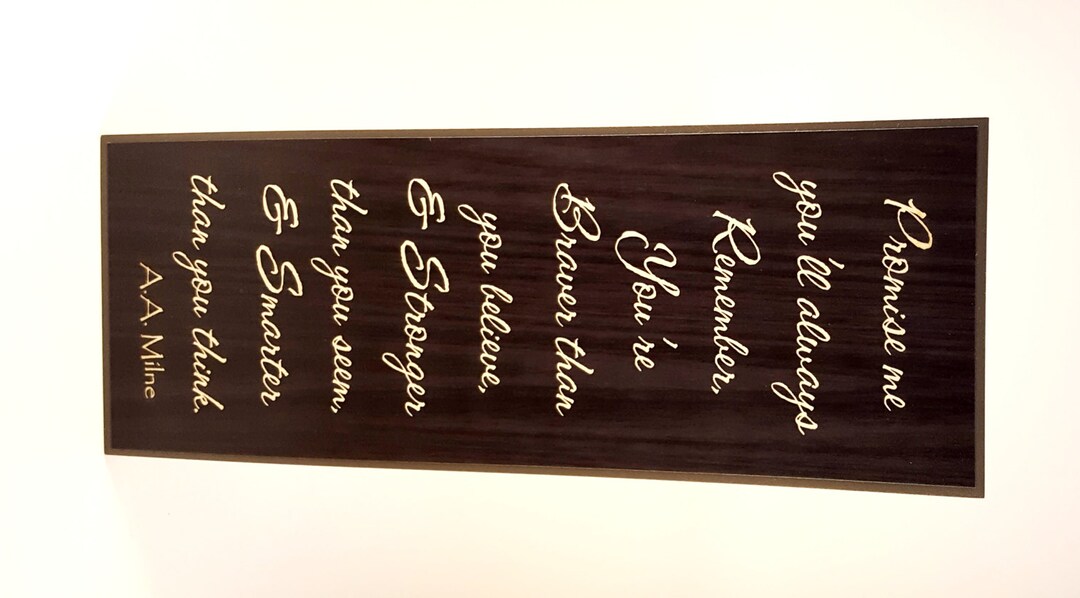 Promise me
you'll always
Remember,
You're
Braver than
you believe,
& Stronger
than you seem,
& Smarter
than you think.
A.A. Milne